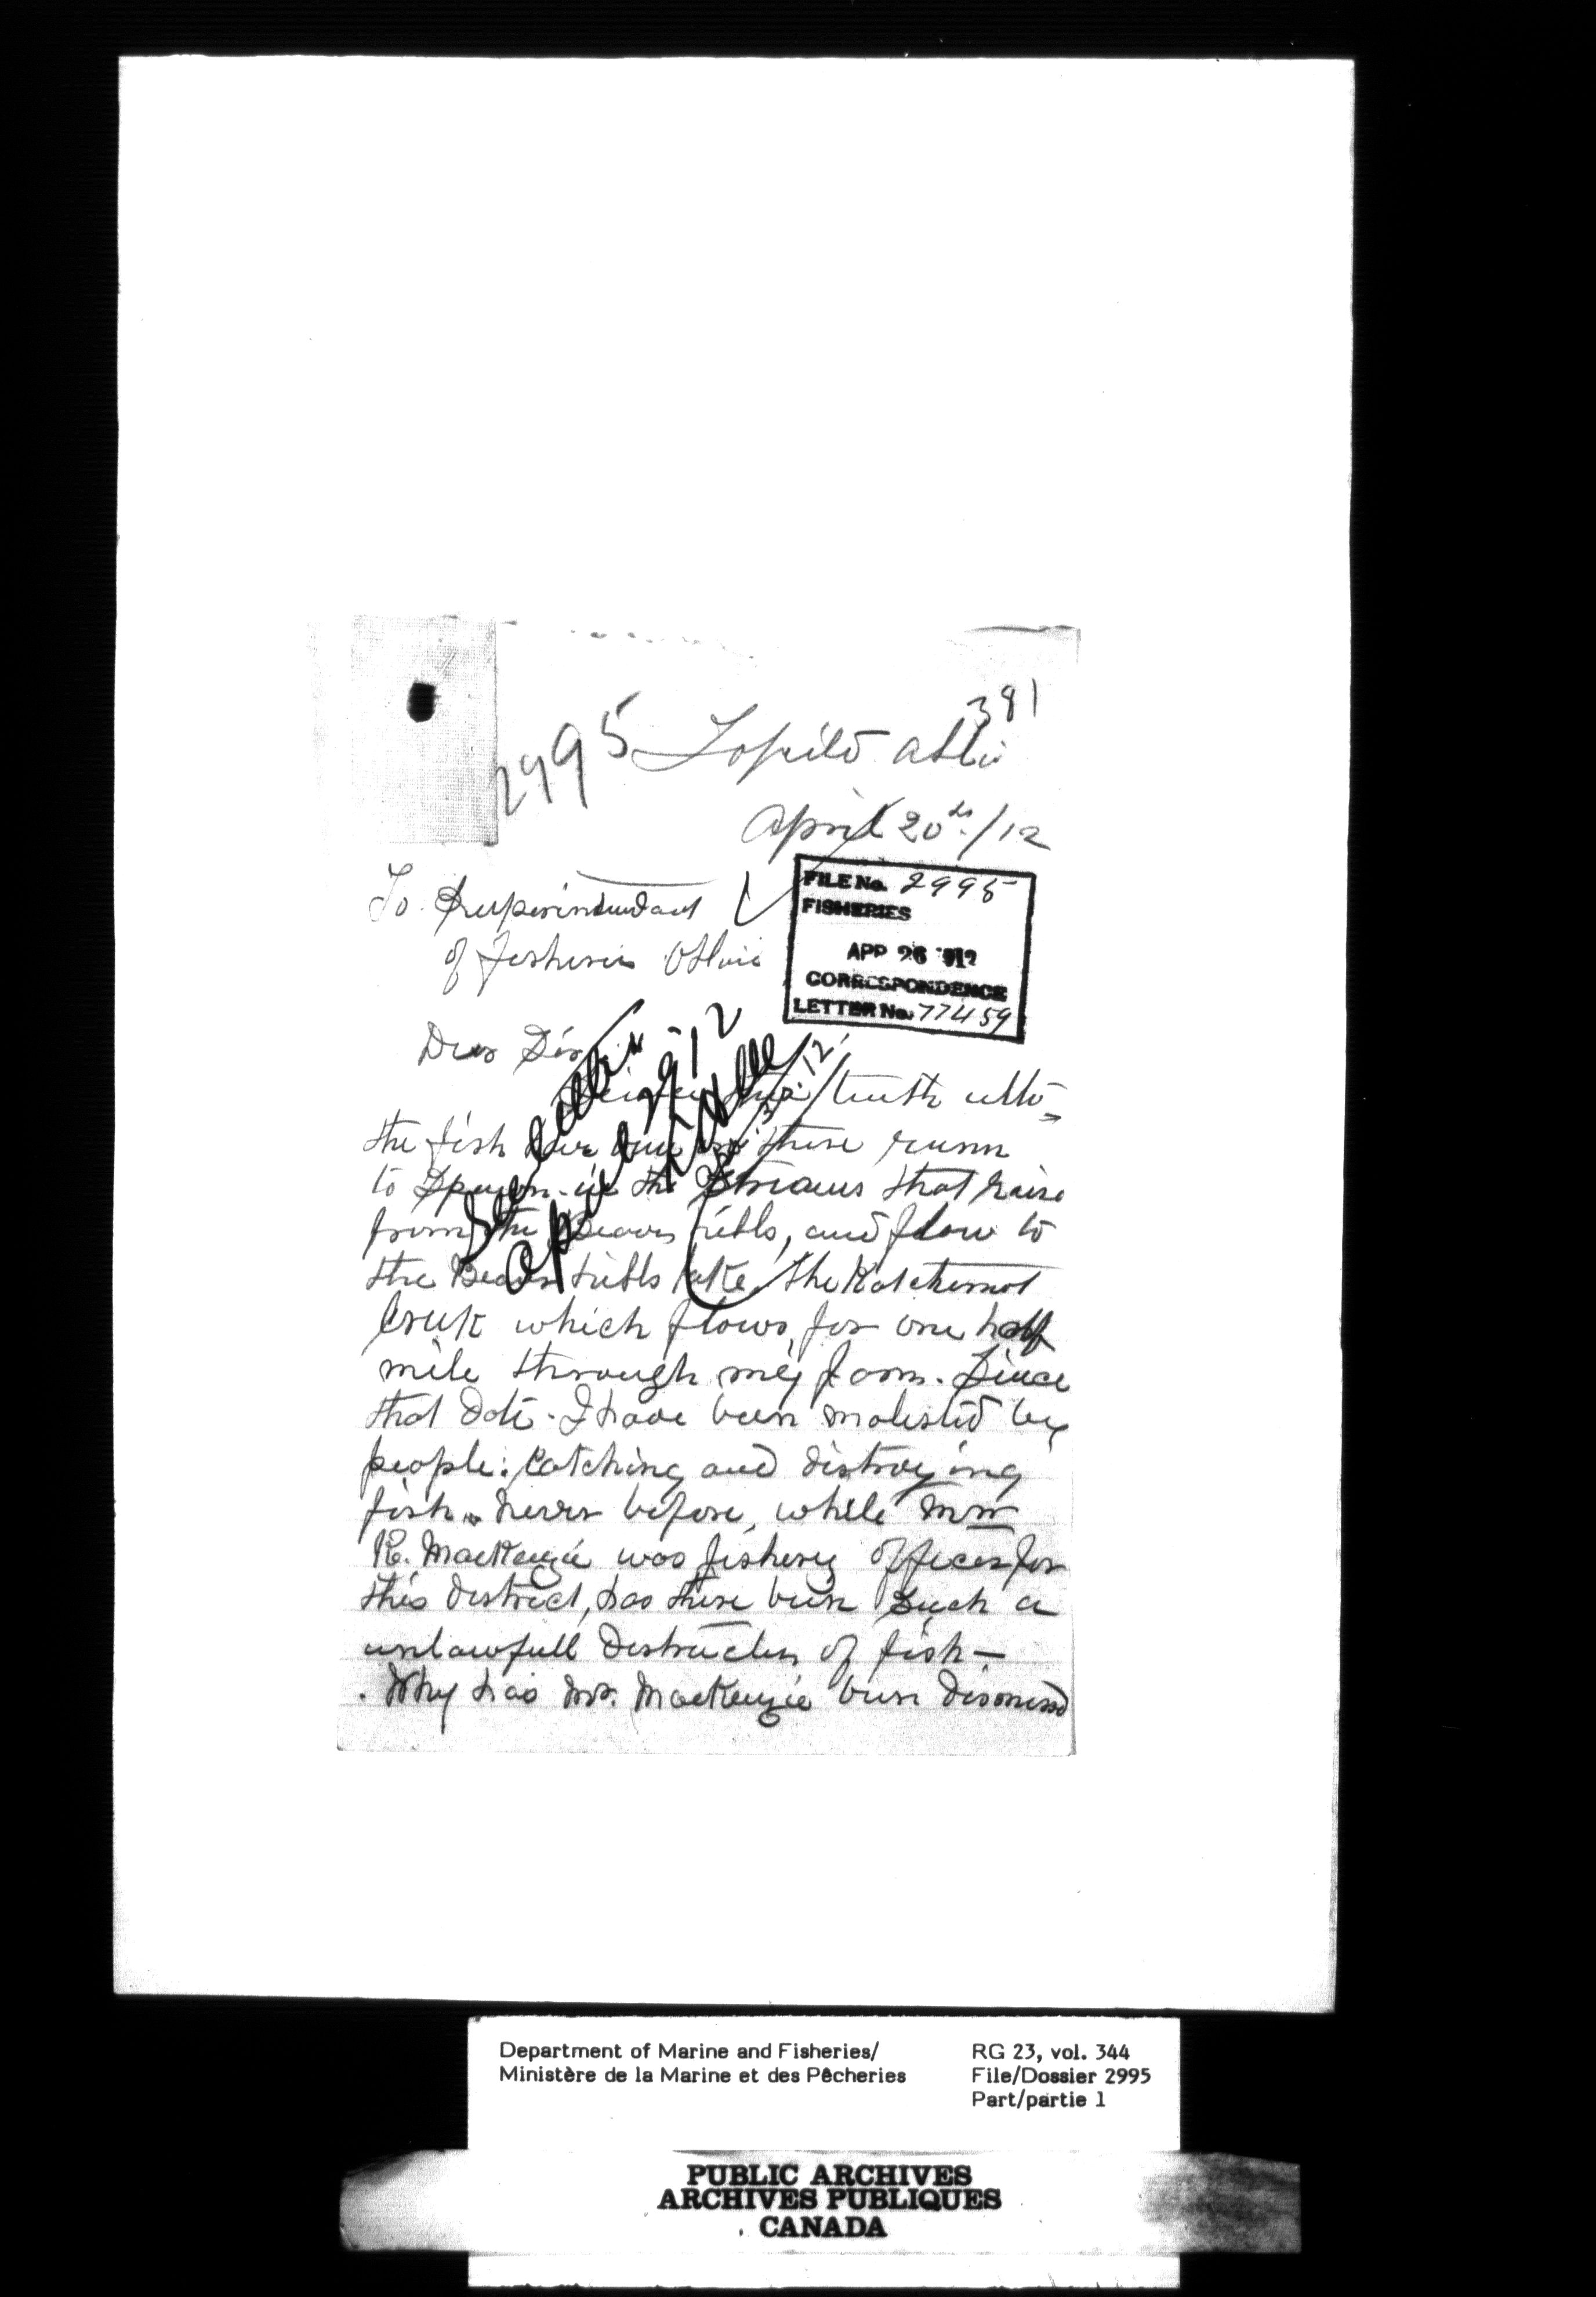 381
2995 Lopilo Alta
April 20th /12
To Superintendant
of Fisheries Ottawa
FILE No. 2995
FISHERIES
APR 26 1912
CORRESPONDENCE
LETTER No. 77459
Dear Sir
See letter
April 1912
tenth ulto
the fish here there runn
to spawn in the Streams that raise
from the Beaver hills, and flow to
the Beaver hills lake, the Katchemot
Creek which flows, for one half
mile through my farm. Since
that date. I have been molested by
people. Catching and distroying
fish never before, while Mr
K. MacKenzie was fishery officer for
this district, has there been such a
unlawfull destruction of fish —
Why has Mr. MacKenzie been dismissed
Department of Marine and Fisheries/
Ministère de la Marine et des Pêcheries
RG 23, vol. 344
File/Dossier 2995
Part/partie 1
PUBLIC ARCHIVES
ARCHIVES PUBLIQUES
CANADA